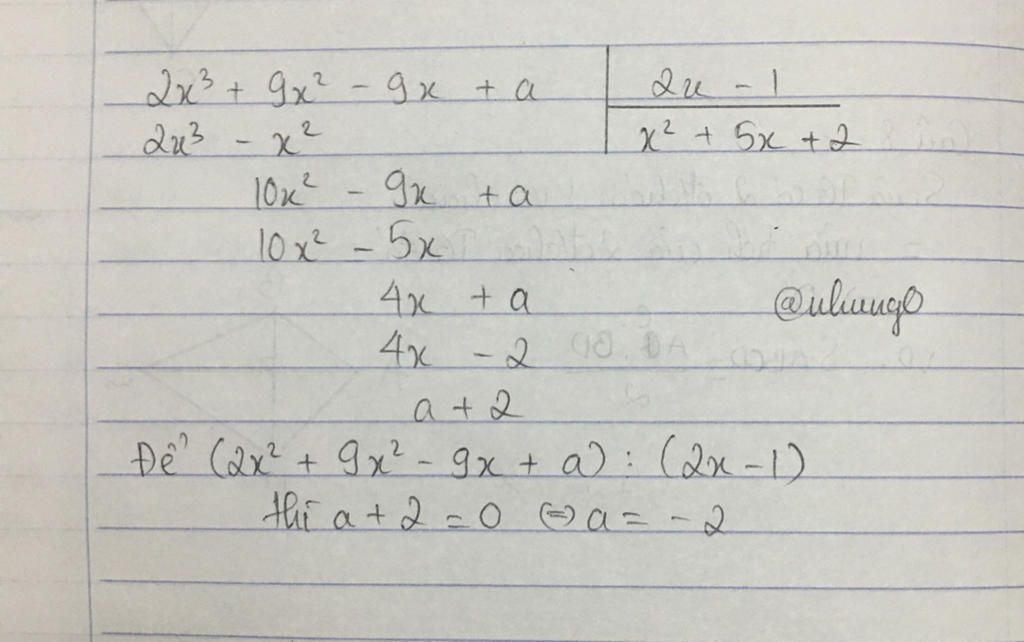 2x³ + 9x² - 9x + a | 2x - 1
2x³ - x² | x² + 5x + 2
10x² - 9x + a
10x² - 5x
4x + a
@nhungo
4x - 2
a + 2
Để (2x² + 9x² - 9x + a) : (2x - 1)
thì a + 2 = 0 ⇔ a = - 2